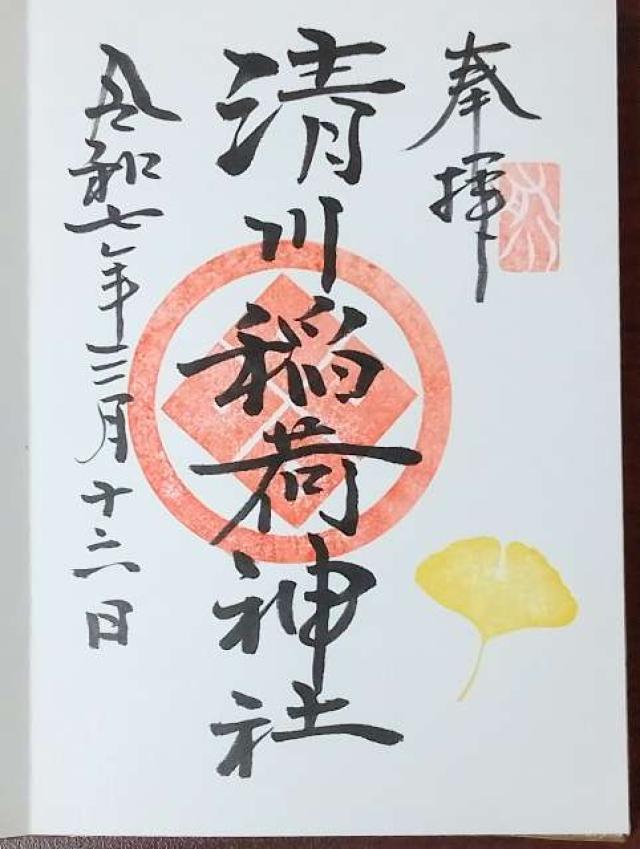 奉拝
清川稲荷神社
令和七年三月十六日